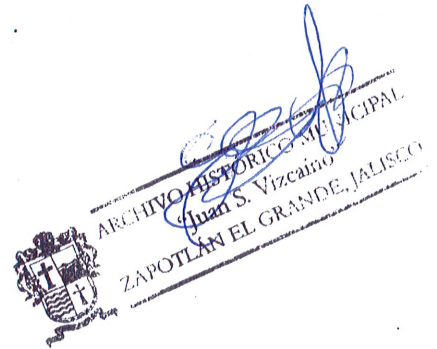 ARCHIVO HISTÓRICO MUNICIPAL
"Juan S. Vizcaíno"
ZAPOTLÁN EL GRANDE, JALISCO